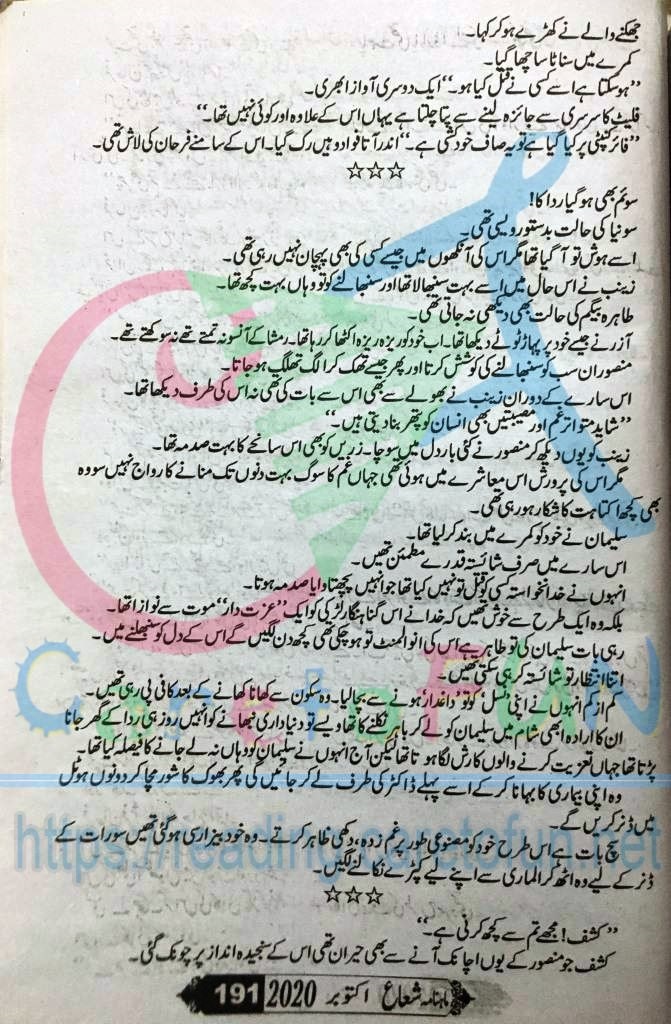 جھکنے والے نے کھڑے ہو کر کہا۔
کمرے میں سناٹا سا چھا گیا۔
”ہو سکتا ہے اسے کسی نے قتل کیا ہو۔“ ایک دوسری آواز ابھری۔
فلیٹ کا سرسری سے جائزہ لینے سے پتا چلتا ہے یہاں اس کے علاوہ اور کوئی نہیں تھا۔“
”فائر کنپٹی پر کیا گیا ہے تو یہ صاف خودکشی ہے۔“ اندر آتا فواد وہیں رک گیا۔ اس کے سامنے فرحان کی لاش تھی۔
☆☆☆
سوئم بھی ہو گیا ردا کا!
سونیا کی حالت بدستور ویسی تھی۔
اسے ہوش تو آ گیا تھا مگر اس کی آنکھوں میں جیسے کسی کی بھی پہچان نہیں رہی تھی۔
زینب نے اس حال میں اسے بہت سنبھالا تھا اور سنبھالنے کو تو وہاں بہت کچھ تھا۔
طاہرہ بیگم کی حالت بھی دیکھی نہ جاتی تھی۔
آزر نے جیسے خود پر پہاڑ ٹوٹے دیکھا تھا۔ اب خود کو ریزہ ریزہ اکٹھا کر رہا تھا۔ رمشا کے آنسو نہ تھمتے تھے نہ سوکھتے تھے۔
منصور ان سب کو سنبھالنے کی کوشش کرتا اور پھر جیسے تھک کر الگ تھلگ ہو جاتا۔
اس سارے کے دوران زینب نے بھولے سے بھی اس سے بات کی تھی نہ اس کی طرف دیکھا تھا۔
”شاید متواتر غم اور مصیبتیں بھی انسان کو پتھر بنا دیتی ہیں۔“
زینب کو یوں دیکھ کر منصور نے کئی بار دل میں سوچا۔ زریں کو بھی اس سانحے کا بہت صدمہ تھا۔
مگر اس کی پرورش اس معاشرے میں ہوئی تھی جہاں غم کا سوگ بہت دنوں تک منانے کا رواج نہیں سو وہ
بھی کچھ اکتاہٹ کا شکار ہو رہی تھی۔
سلیمان نے خود کو کمرے میں بند کر لیا تھا۔
اس سارے میں صرف شائستہ قدرے مطمئن تھیں۔
انہوں نے خدانخواستہ کسی کو قتل تو نہیں کیا تھا جو انہیں پچھتاوا یا صدمہ ہوتا۔
بلکہ وہ ایک طرح سے خوش تھیں کہ خدا نے اس گناہگار لڑکی کو ایک ”عزت دار“ موت سے نوازا تھا۔
رہی بات سلیمان کی تو ظاہر ہے اس کی انوالمنٹ تو ہو چکی تھی کچھ دن لگیں گے اس کے دل کو سنبھلنے میں۔
اتنا انتظار تو شائستہ کر ہی سکتی تھیں۔
کم از کم انہوں نے اپنی نسل کو تو ’داغدار‘ ہونے سے بچا لیا۔ وہ سکون سے کھانا کھانے کے بعد کافی پی رہی تھیں۔
ان کا ارادہ ابھی شام میں سلیمان کو لے کر باہر نکلنے کا تھا ویسے تو دنیاداری نبھانے کو انہیں روز ہی ردا کے گھر جانا
پڑتا تھا جہاں تعزیت کرنے والوں کا رش لگا ہوتا تھا لیکن آج انہوں نے سلیمان کو وہاں نہ لے جانے کا فیصلہ کیا تھا۔
وہ اپنی بیماری کا بہانا کر کے اسے پہلے ڈاکٹر کی طرف لے کر جائیں گی پھر بھوک کا شور مچا کر دونوں ہوٹل
میں ڈنر کریں گے۔
سچ بات ہے اس طرح خود کو مصنوعی طور پر غم زدہ، دکھی ظاہر کرتے۔ وہ خود بیزار سی ہو گئی تھیں سو رات کے
ڈنر کے لیے وہ اٹھ کر الماری سے اپنے لیے کپڑے نکالنے لگیں۔
☆☆☆
”کشف! مجھے تم سے کچھ کہنی ہے۔“
کشف جو منصور کے یوں اچانک آنے سے بھی حیران تھی اس کے سنجیدہ انداز پر چونک گئی۔
ماہنامہ شعاع اکتوبر 2020 191
CaretoFUN
https://reading.caretofun.net